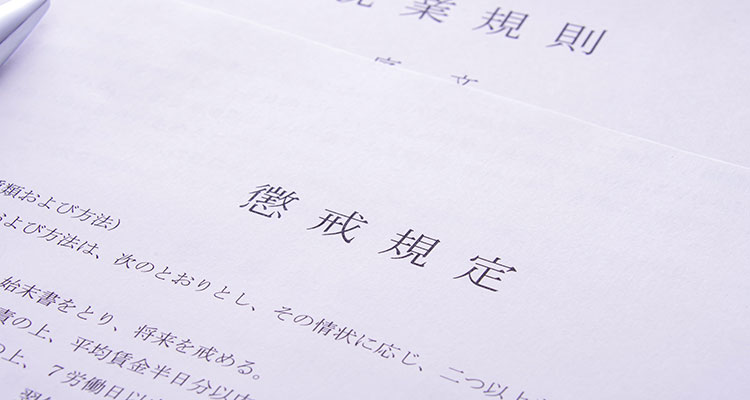 業規則
懲戒規定
類および方法）
および方法は、次のとおりとし、その情状に応じ、二つ以上
始末書をとり、将来を戒める。
責の上、平均賃金半日分以内
の上、７労働日以